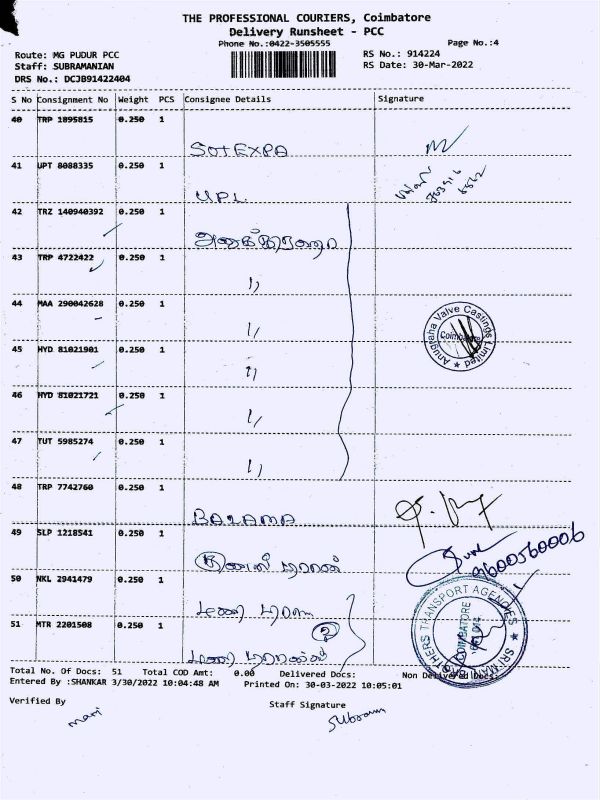 THE PROFESSIONAL COURIERS, Coimbatore
Delivery Runsheet - PCC
Phone No.:0422-3505555
Page No.:4
Route: MG PUDUR PCC
RS No.: 914224
Staff: SUBRAMANIAN
RS Date: 30-Mar-2022
DRS No.: DCJB91422404
S No Consignment No Weight PCS Consignee Details Signature
40 TRP 1895815 0.250 1
SOTEXPA
41 UPT 8088335 0.250 1
UPL
42 TRZ 140940392 0.250 1
43 TRP 4722422 0.250 1
44 MAA 290042628 0.250 1
Anugraha Valve Castings Limited
Coimbatore
45 HYD 81021901 0.250 1
46 HYD 81021721 0.250 1
47 TUT 5985274 0.250 1
48 TRP 7742760 0.250 1
BALAMA
49 SLP 1218541 0.250 1
9600560006
50 NKL 2941479 0.250 1
51 MTR 2201508 0.250 1
2
TRANSPORT AGENCIES
COIMBATORE
Total No. Of Docs: 51 Total COD Amt: 0.00 Delivered Docs: Non Delivered Docs:
Entered By :SHANKAR 3/30/2022 10:04:48 AM Printed On: 30-03-2022 10:05:01
Verified By Staff Signature
mari
Subram